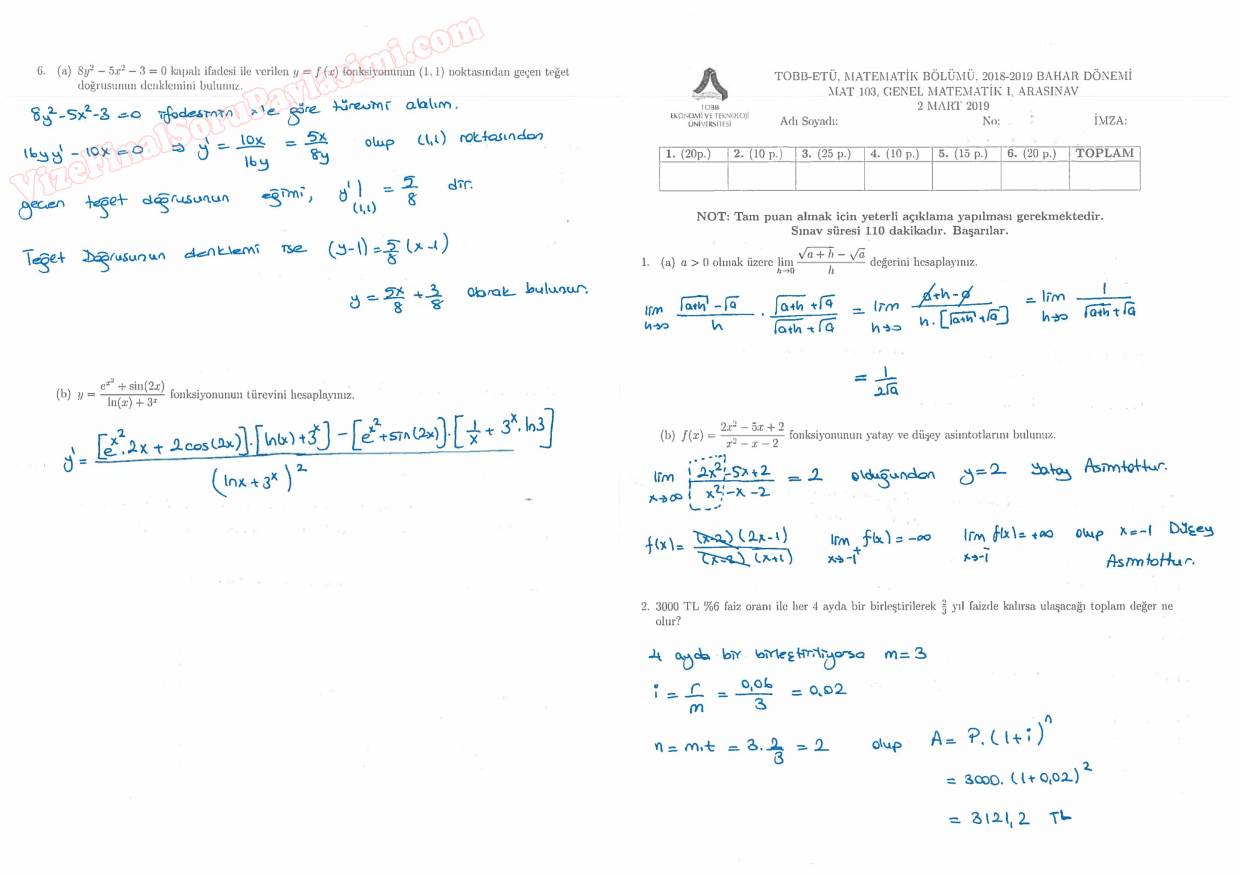 VizeFinalSoruPaylasimi.com
6. (a) 8y² − 5x² − 3 = 0 kapalı ifadesi ile verilen y = f(x) fonksiyonunun (1, 1) noktasından geçen teğet
doğrusunun denklemini bulunuz.
8y²-5x²-3=0 ifadesinin x'e göre türevini alalım.
16yy' - 10x=0 ⇒ y' = 10x/16y = 5x/8y olup (1,1) noktasından
geçen teğet doğrusunun eğimi, y'|(1,1) = 5/8 dir.
Teğet Doğrusunun denklemi ise (y-1)=5/8(x-1)
y = 5x/8 + 3/8 olarak bulunur.
(b) y = (e^(x²) + sin(2x))/(ln(x) + 3^x) fonksiyonunun türevini hesaplayınız.
y' = [e^(x²).2x + 2cos(2x)].[ln(x)+3^x] - [e^(x²)+sin(2x)].[1/x + 3^x.ln3]
(lnx+3^x)²
TOBB
EKONOMİ VE TEKNOLOJİ
ÜNİVERSİTESİ
TOBB-ETÜ, MATEMATİK BÖLÜMÜ, 2018-2019 BAHAR DÖNEMİ
MAT 103, GENEL MATEMATİK I, ARASINAV
2 MART 2019
Adı Soyadı: No: İMZA:
1. (20p.) 2. (10 p.) 3. (25 p.) 4. (10 p.) 5. (15 p.) 6. (20 p.) TOPLAM
NOT: Tam puan almak için yeterli açıklama yapılması gerekmektedir.
Sınav süresi 110 dakikadır. Başarılar.
1. (a) a > 0 olmak üzere lim h→0 (√(a + h) − √a)/h değerini hesaplayınız.
lim h→0 (√(a+h) - √a)/h . (√(a+h) + √a)/(√(a+h) + √a) = lim h→0 (a+h-a)/(h.[√(a+h) + √a]) = lim h→0 1/(√(a+h) + √a)
= 1/(2√a)
(b) f(x) = (2x² − 5x + 2)/(x² − x − 2) fonksiyonunun yatay ve düşey asimtotlarını bulunuz.
lim x→∞ (2x²-5x+2)/(x²-x-2) = 2 olduğundan y=2 Yatay Asimtottur.
f(x)= (x-2)(2x-1)/(x-2)(x+1) lim x→-1⁺ f(x) = -∞ lim x→-1⁻ f(x) = +∞ olup x=-1 Düşey
Asimtottur.
2. 3000 TL %6 faiz oranı ile her 4 ayda bir birleştirilerek 2/3 yıl faizde kalırsa ulaşacağı toplam değer ne
olur?
4 ayda bir birleştiriliyorsa m=3
i = r/m = 0,06/3 = 0,02
n = m.t = 3.2/3 = 2 olup A = P.(1+i)ⁿ
= 3000.(1+0,02)²
= 3121,2 TL